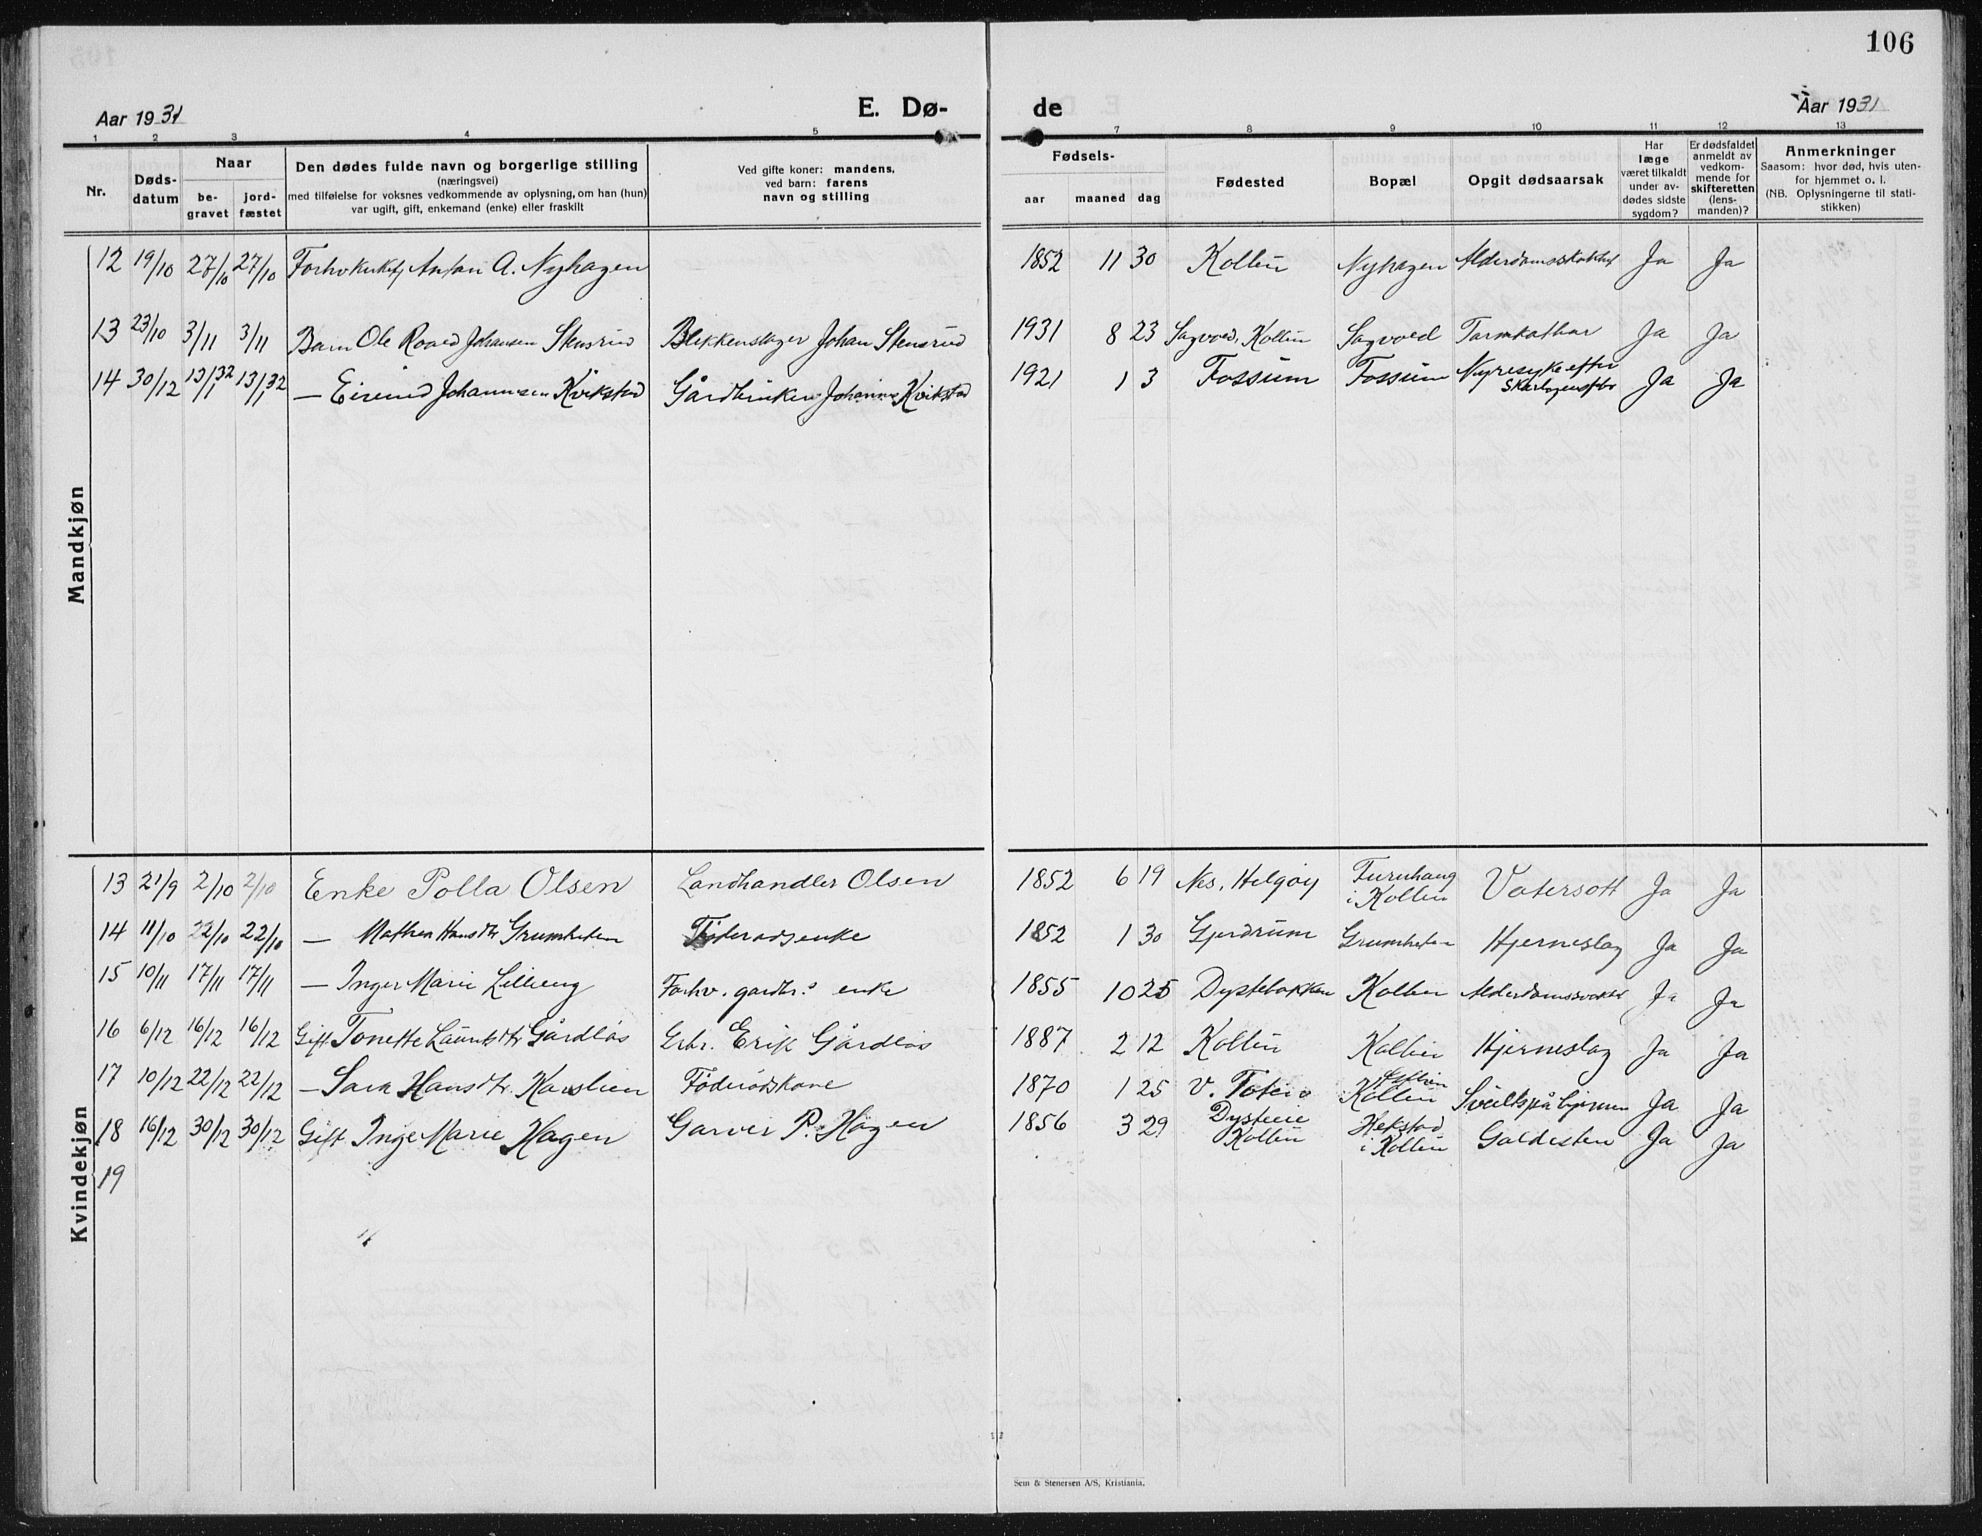 106
Aar 1931
E. Dø-
de
Aar 1931
1 2 3 4 5 7 8 9 10 11 12 13
Nr.
Døds-
datum
Naar
be-
gravet
jord-
fæstet
Den dødes fulde navn og borgerlige stilling
(næringsvei)
med tilføielse for voksnes vedkommende av oplysning, om han (hun)
var ugift, gift, enkemand (enke) eller fraskilt
Ved gifte koner: mandens,
ved barn: farens
navn og stilling
Fødsels-
aar maaned dag
Fødested
Bopæl
Opgit dødsaarsak
Har
læge
været tilkaldt
under av-
dødes sidste
sygdom?
Er dødsfaldet
anmeldt av
vedkom-
mende for
skifteretten
(lens-
manden)?
Anmerkninger
Saasom: hvor død, hvis uten-
for hjemmet o. l.
(NB. Oplysningerne til stati-
stikken)
Mandkjøn
12 19/10 27/10 27/10 Anton A. Nyhagen 1852 11 30 Kolbu Nyhagen Ja Ja
13 23/10 3/11 3/11 Barn Ole Roald Johansen Stensrud Blikkenslager Johan Stensrud 1931 8 23 Sagvold, Kolbu Sagvold Tarmkathar Ja Ja
14 30/12 13/1 32 13/1 32 — Eivind Johannesen Kvikstad Gårdbruker Johannes Kvikstad 1921 1 3 Fossum Fossum Nyresyke efter
Ja Ja
Kvindekjøn
13 21/9 2/10 2/10 Enke Polla Olsen Landhandler Olsen 1852 6 19 Nes, Helgøy Furuhaug
i Kolbu Vatersott Ja Ja
14 11/10 22/10 22/10 — Mathea Hansdtr Grumheten Føderadsenke 1852 1 30 Gjerdrum Grumheten Hjerneslag Ja Ja
15 10/11 17/11 17/11 — Inger Marie Lilleeng Forhv. gardbr.s enke 1855 10 25 Dystebakken Kolbu Ja Ja
16 6/12 16/12 16/12 Gift Tonette Lauritsdtr Gårdløs Gbr. Erik Gårdløs 1887 2 12 Kolbu Kolbu Hjerneslag Ja Ja
17 10/12 22/12 22/12 — Sara Hansdtr. Føderådskone 1870 1 25 V. Toten
Kolbu Ja Ja
18 16/12 30/12 30/12 Gift Inger Marie Hagen Garver P. Hagen 1856 3 29 Dysteeie
Kolbu Hekstad
i Kolbu Galdesten Ja Ja
19
Sem & Stenersen A/S, Kristiania.